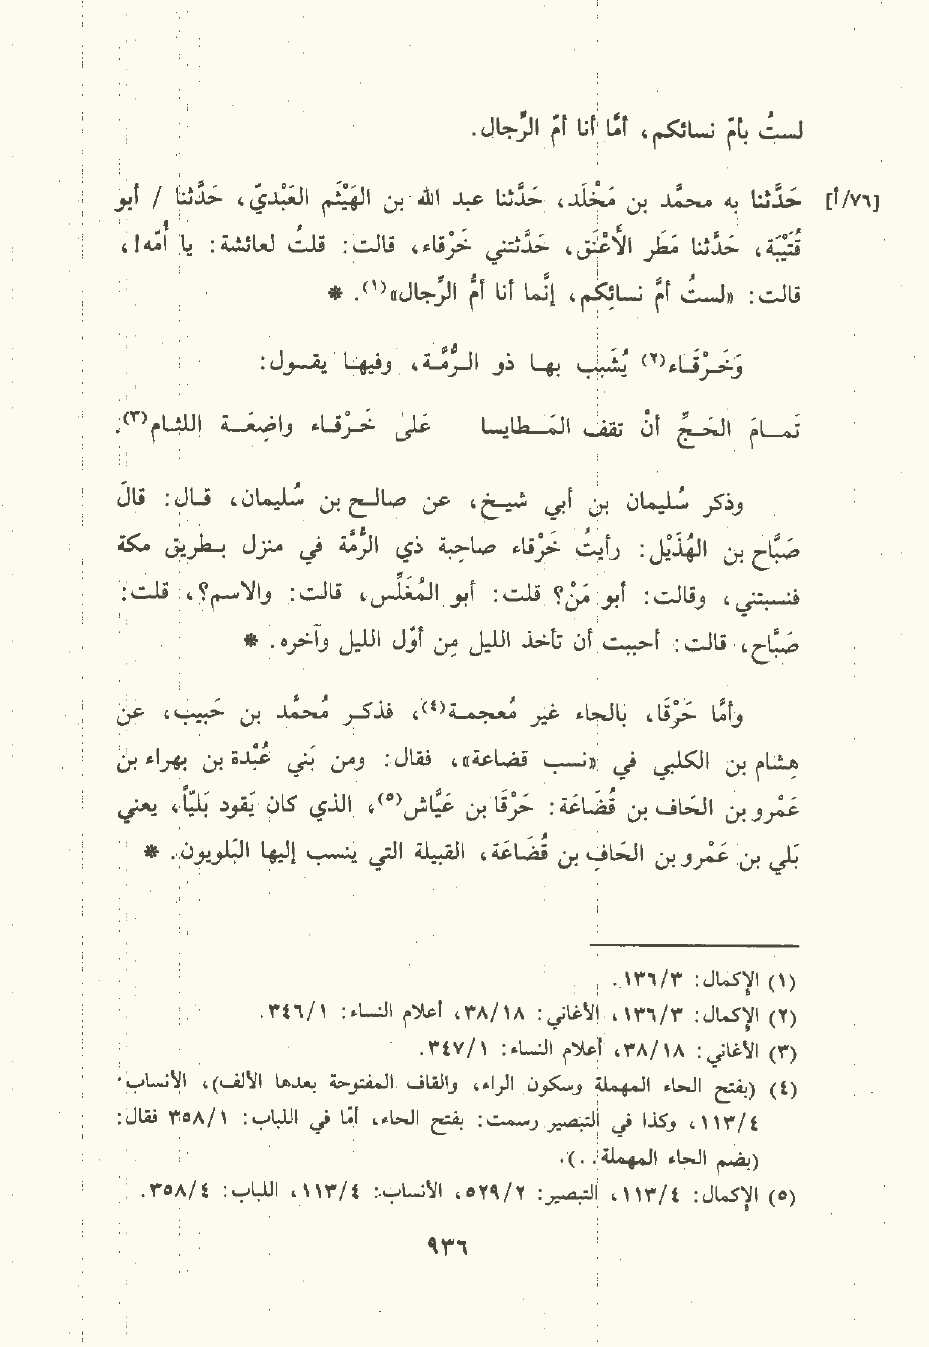 لستُ بأمّ نسائكم، أمَّا أنا أمّ الرِّجال.
[٧٦/أ] حَدَّثنا به محمَّد بن مَخْلَد، حَدَّثنا عبد الله بن الهَيْثم العَبْديّ، حَدَّثنا / أبو
قُتَيْبَة، حَدَّثنا مَطَر الأَعْنَق، حَدَّثتني خَرْقاء، قالت: قلتُ لعائشة: يا أُمّه!،
قالت: «لستُ أمَّ نسائِكم، إنَّما أنا أمُّ الرِّجال»(١). *
وَخَـرْقَـاء(٢) يُشَبِّب بهـا ذو الـرُّمَّـة، وفيهـا يقـول:
تَمـــامُ الحَــجِّ أنْ تقف المَــطايــا عَلىٰ خَـرْقـاء واضِعَـةَ اللثـام(٣).
وذكر سُليمان بن أبي شيـخ، عن صالـح بن سُليمان، قـال: قالَ
صَبَّاح بن الهُذَيْل: رأيتُ خَرْقاء صاحِبة ذي الرُّمَّة في منزل بـطريق مكة
فنسبتني، وقالت: أبو مَنْ؟ قلت: أبو المُغَلِّس، قالت: والاسم؟، قلت:
صَبَّاح، قالت: أحببت أن تأخذ الليل مِن أوّل الليل وآخره. *
وأمَّا حَرْقَا، بالحاء غير مُعجمـة(٤)، فذكـر مُحمَّد بن حَبيب، عن
هِشام بن الكلبي في «نسب قضاعة»، فقال: ومن بَني عُبْدة بن بهراء بن
عَمْرو بن الحَاف بن قُضَاعَة: حَرْقَا بن عَيَّاش(٥)، الذي كان يَقود بَليّاً، يعني
بَلي بن عَمْرو بن الحَافِ بن قُضَاعَة، القبيلة التي ينسب إليها البَلويون. *
(١) الإكمال: ١٣٦/٣.
(٢) الإكمال: ١٣٦/٣، الأغاني: ٣٨/١٨، أعلام النساء: ٣٤٦/١.
(٣) الأغاني: ٣٨/١٨، أعلام النساء: ٣٤٧/١.
(٤) (بفتح الحاء المهملة وسكون الراء، والقاف المفتوحة بعدها الألف)، الأنساب:
٤/١١٣، وكذا في التبصير رسمت: بفتح الحاء، أمّا في اللباب: ٣٥٨/١ فقال:
(بضم الحاء المهملة..).
(٥) الإكمال: ١١٣/٤، التبصير: ٥٢٩/٢، الأنساب: ١١٣/٤، اللباب: ٣٥٨/٤.
٩٣٦